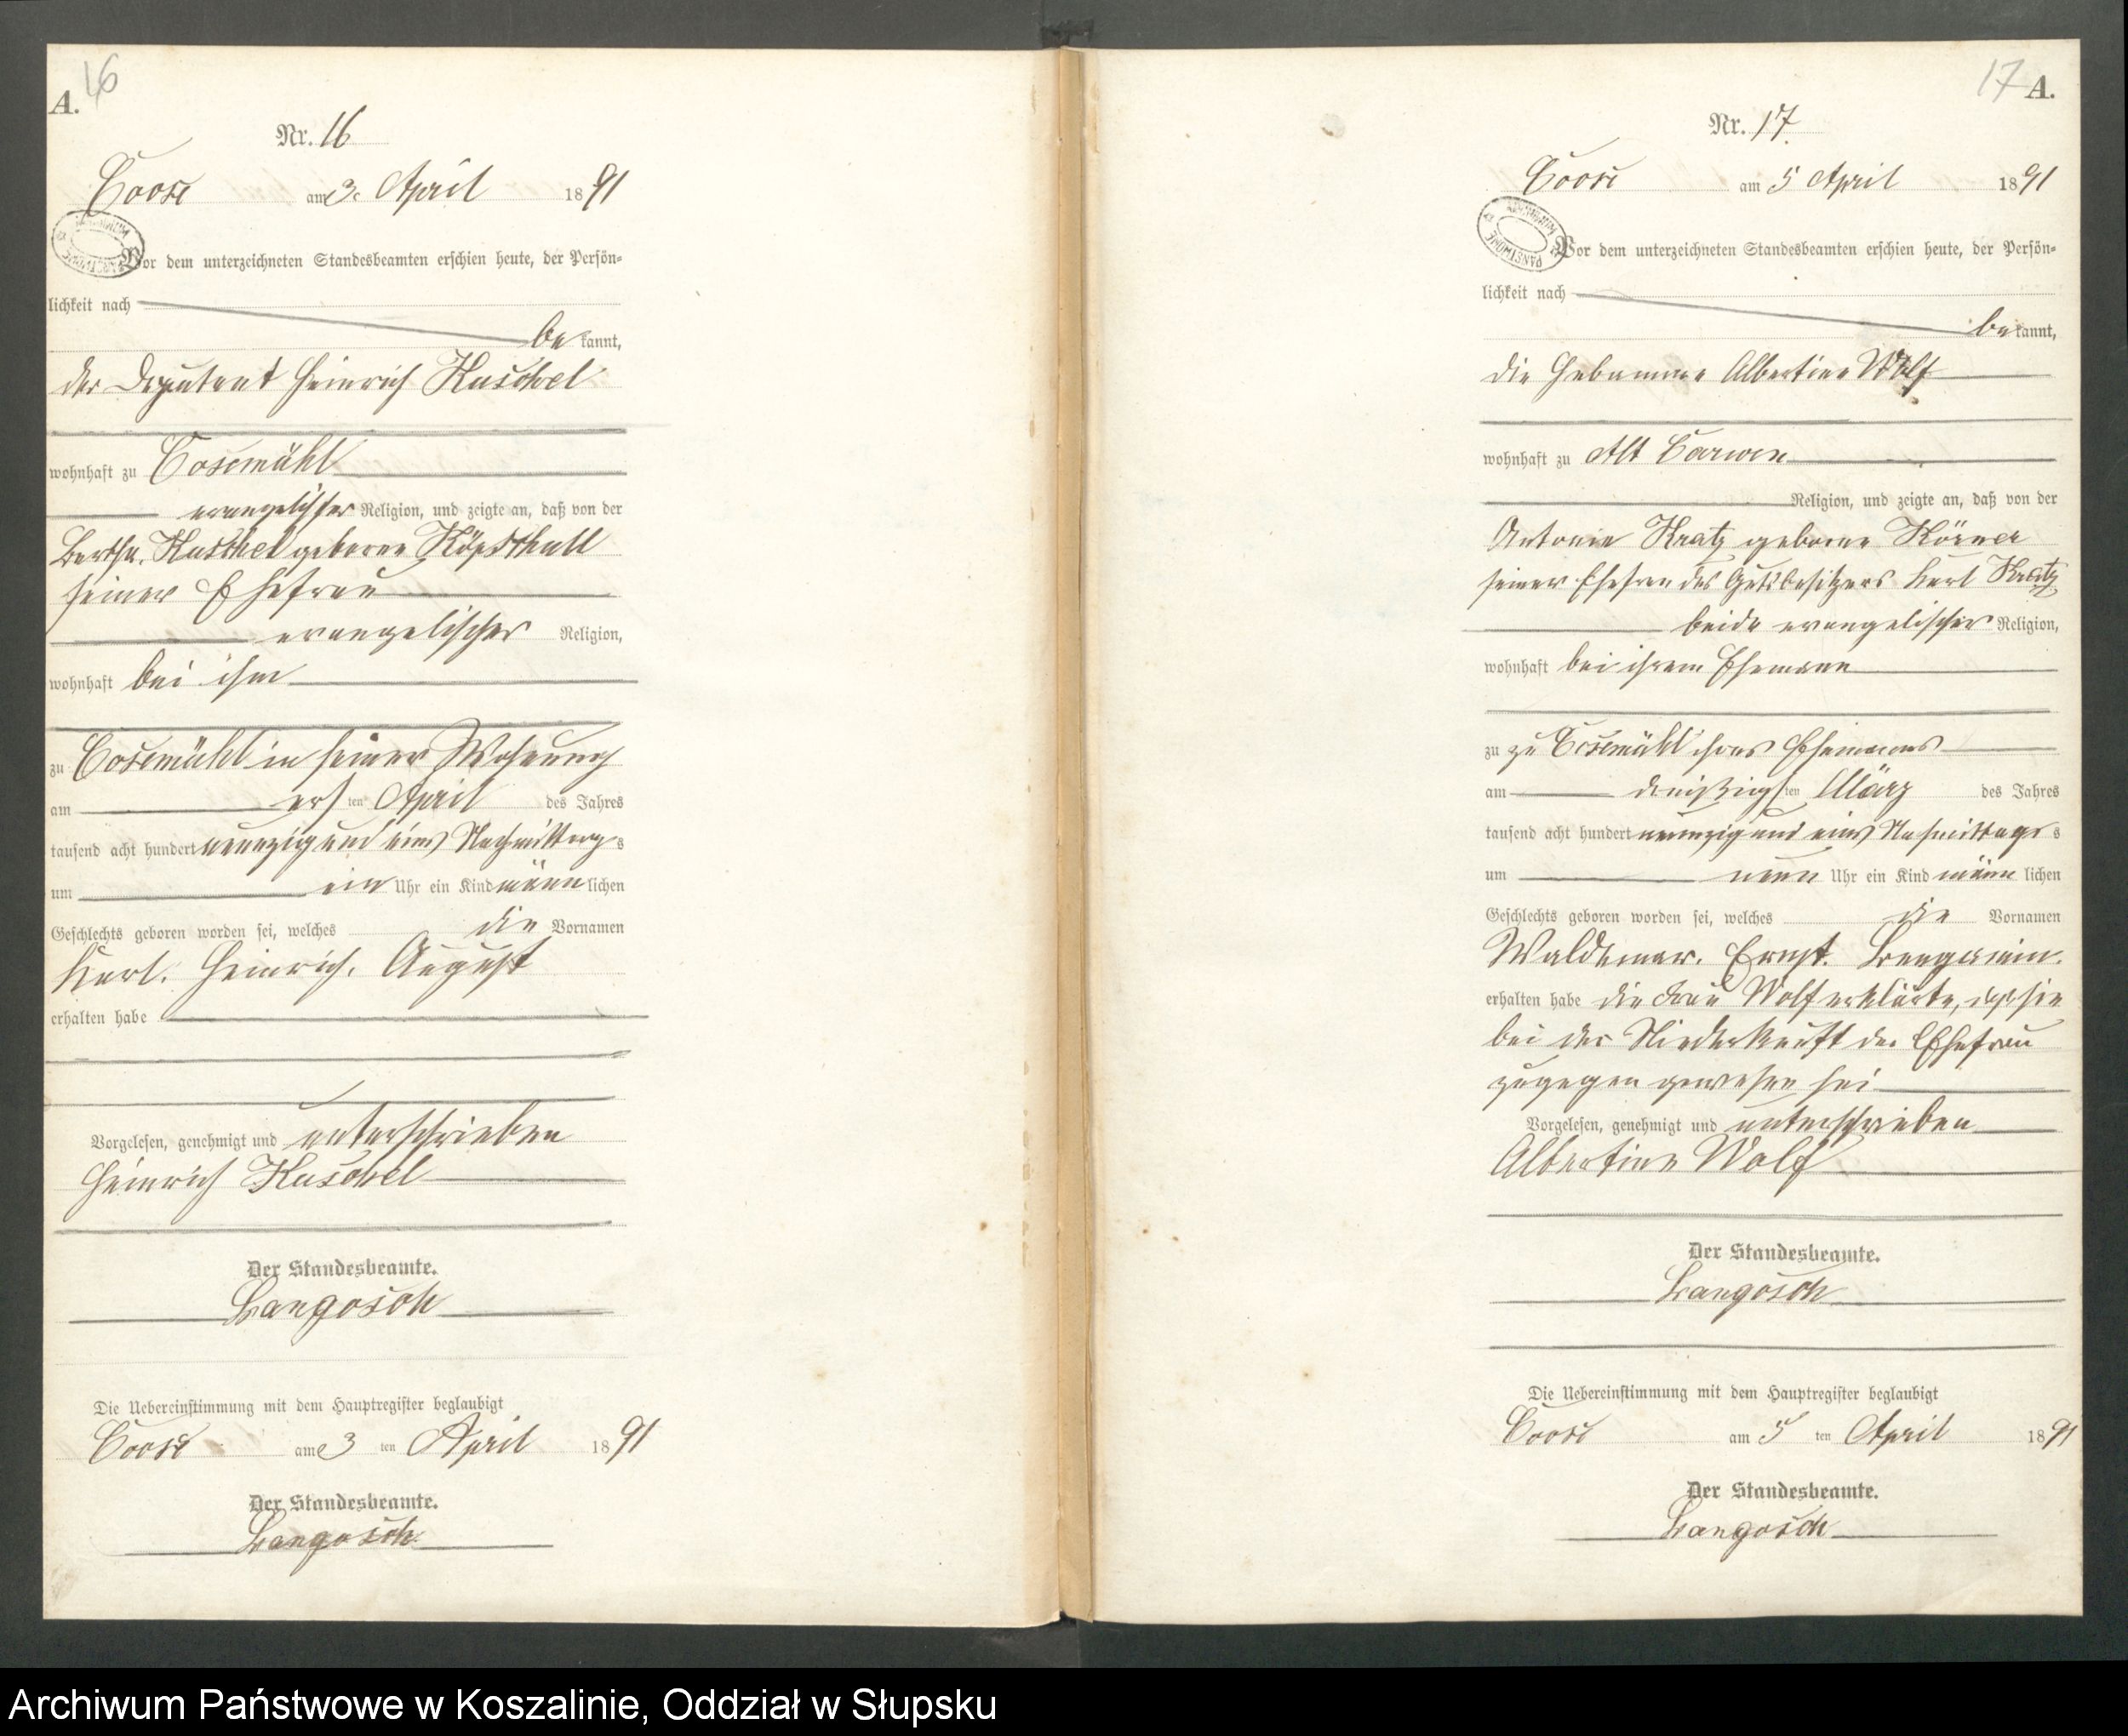 16
A.
Nr. 16
Coose am 3. April 1891
Vor dem unterzeichneten Standesbeamten erschien heute, der Persön-
lichkeit nach
bekannt,
der Deputant Heinrich Kuschel
wohnhaft zu Cosemühl
evangelischer Religion, und zeigte an, daß von der
Bertha Kuschel geborene Köpsthull
seiner Ehefrau
evangelischer Religion,
wohnhaft bei ihm
zu Cosemühl in seiner Wohnung
am ersten April des Jahres
tausend acht hundert neunzig und eins Nachmittags
um ein Uhr ein Kind männlichen
Geschlechts geboren worden sei, welches die Vornamen
Karl. Heinrich. August
erhalten habe
Vorgelesen, genehmigt und unterschrieben
Heinrich Kuschel
Der Standesbeamte.
Langosch
Die Uebereinstimmung mit dem Hauptregister beglaubigt
Coose am 3 ten April 1891
Der Standesbeamte.
Langosch.
17 A.
Nr. 17.
Coose am 5 April 1891
Vor dem unterzeichneten Standesbeamten erschien heute, der Persön-
lichkeit nach
bekannt,
die Hebamme Albertine Wolf
wohnhaft zu Alt Carwen
Religion, und zeigte an, daß von der
Antonie Kratz geborne Körner
seiner Ehefrau des Gutsbesitzers Karl Kratz
beide evangelischer Religion,
wohnhaft bei ihrem Ehemann
zu zu Cosemühl ihres Ehemanns
am dreißigsten März des Jahres
tausend acht hundert neunzig und eins Nachmittags s
um neun Uhr ein Kind männlichen
Geschlechts geboren worden sei, welches die Vornamen
Waldemar. Ernst. Benjamin.
erhalten habe die Frau Wolf erklärte, daß sie
bei der Niederkunft der Ehefrau
zugegen gewesen sei
Vorgelesen, genehmigt und unterschrieben
Albertine Wolf
Der Standesbeamte.
Langosch
Die Uebereinstimmung mit dem Hauptregister beglaubigt
Coose am 5 ten April 1891
Der Standesbeamte.
Langosch
Archiwum Państwowe w Koszalinie, Oddział w Słupsku